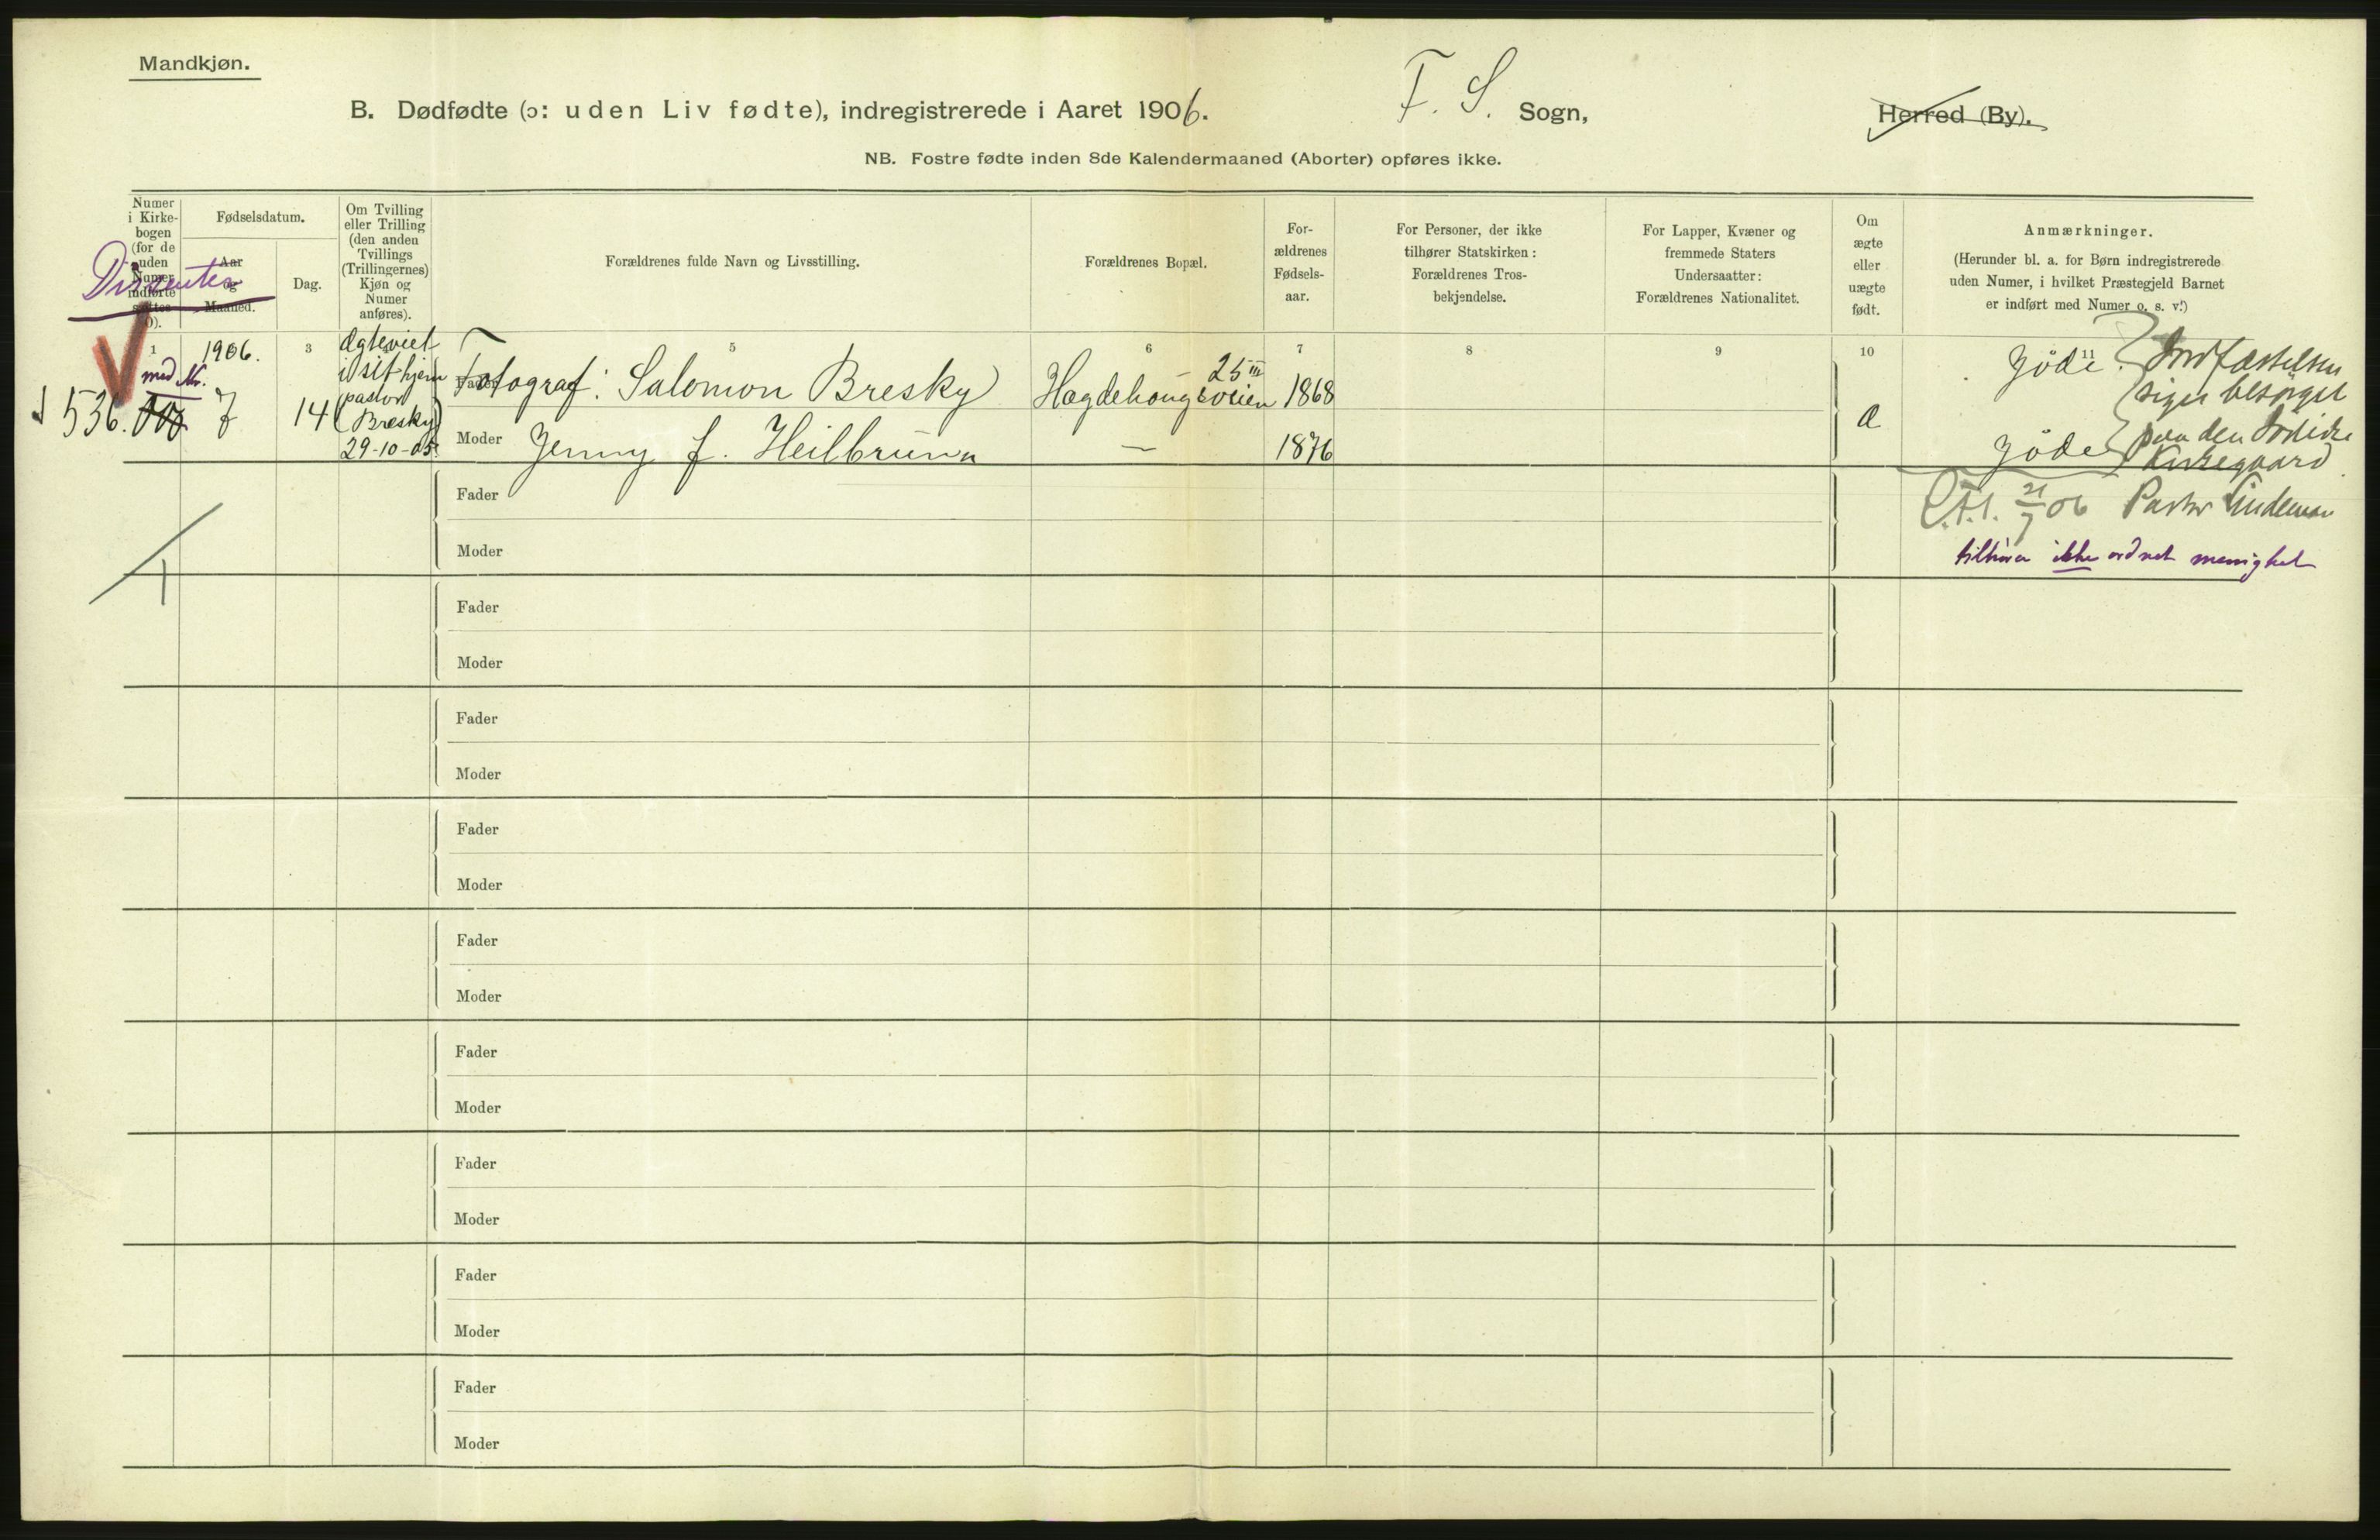 Mandkjøn.
B. Dødfødte (ɔ: uden Liv fødte), indregistrerede i Aaret 1906. F. S. Sogn, Herred (By).
NB. Fostre fødte inden 8de Kalendermaaned (Aborter) opføres ikke.
Numer
i Kirke-
bogen
(for de
uden
Numer
indførte
sættes
0).
Dissenter
Fødselsdatum.
Aar
og
Maaned.
Dag.
Om Tvilling
eller Trilling
(den anden
Tvillings
(Trillingernes)
Kjøn og
Numer
anføres).
Forældrenes fulde Navn og Livsstilling.
Forældrenes Bopæl.
For-
ældrenes
Fødsels-
aar.
For Personer, der ikke
tilhører Statskirken:
Forældrenes Tros-
bekjendelse.
For Lapper, Kvæner og
fremmede Staters
Undersaatter:
Forældrenes Nationalitet.
Om
ægte
eller
uægte
født.
Anmærkninger.
(Herunder bl. a. for Børn indregistrerede
uden Numer, i hvilket Præstegjeld Barnet
er indført med Numer o. s. v.)
1 3 5 6 7 8 9 10 11
1906.
med Nr.
536. 7 14
Ægteviet
i sit hjem
(pastor
Bresky)
29-10-05
Fader Fotograf: Salomon Bresky Hagdehougsveien 25 III 1868
Moder Jenny f. Heilbrunn — 1876
Æ
Jøde.
Jøde
Jordfæstelsen
siges besørget
paa den Jødiske
Kirkegaard
21/7 06 Pastor Lindeman
tilhører ikke ordnet menighet
1
Fader
Moder
Fader
Moder
Fader
Moder
Fader
Moder
Fader
Moder
Fader
Moder
Fader
Moder
Fader
Moder
Fader
Moder